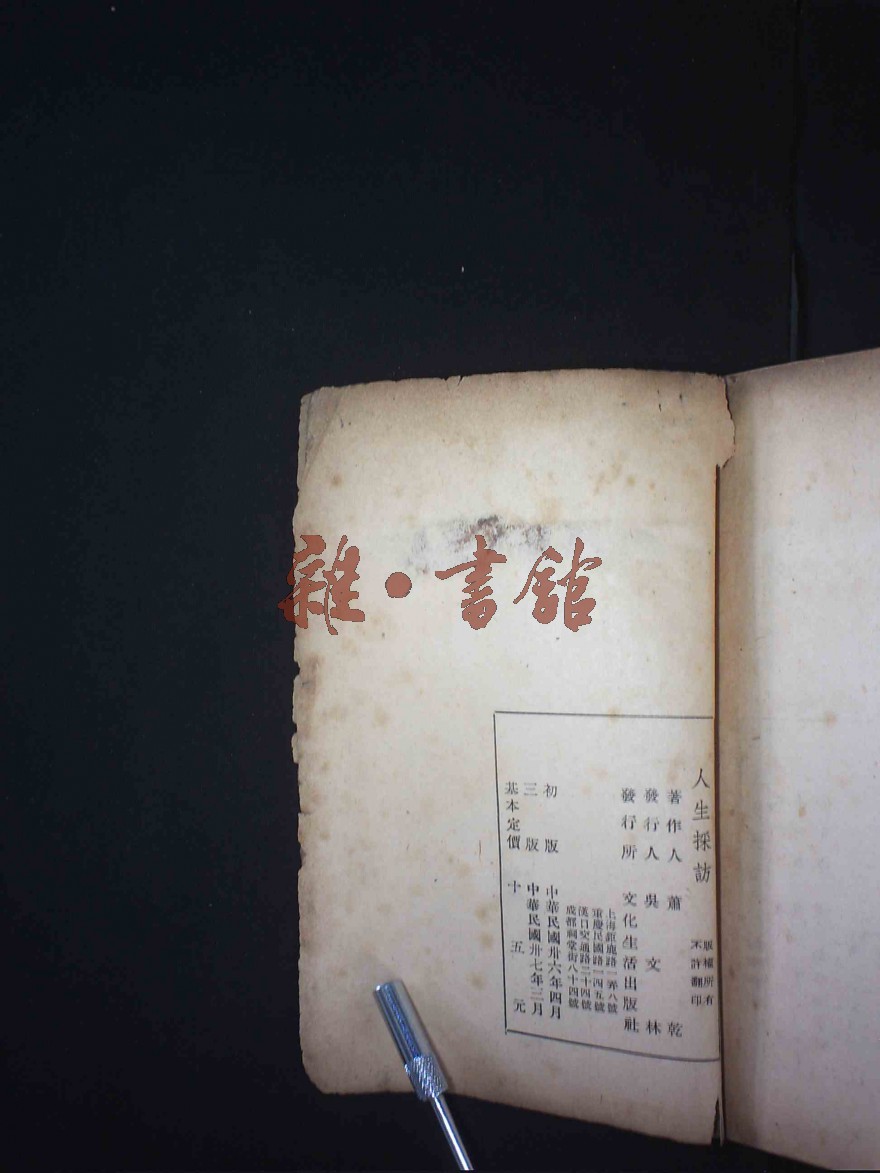 雜·書館
人生採訪
版權所有
不許翻印
著作人 蕭 乾
發行人 吳 文 林
發行所 文化生活出版社
上海鉅鹿路一弄八號
重慶民國路一四五號
漢口交通路二十四號
成都祠堂街八十四號
初 版 中華民國卅六年四月
三 版 中華民國卅七年三月
基本定價 十 五 元